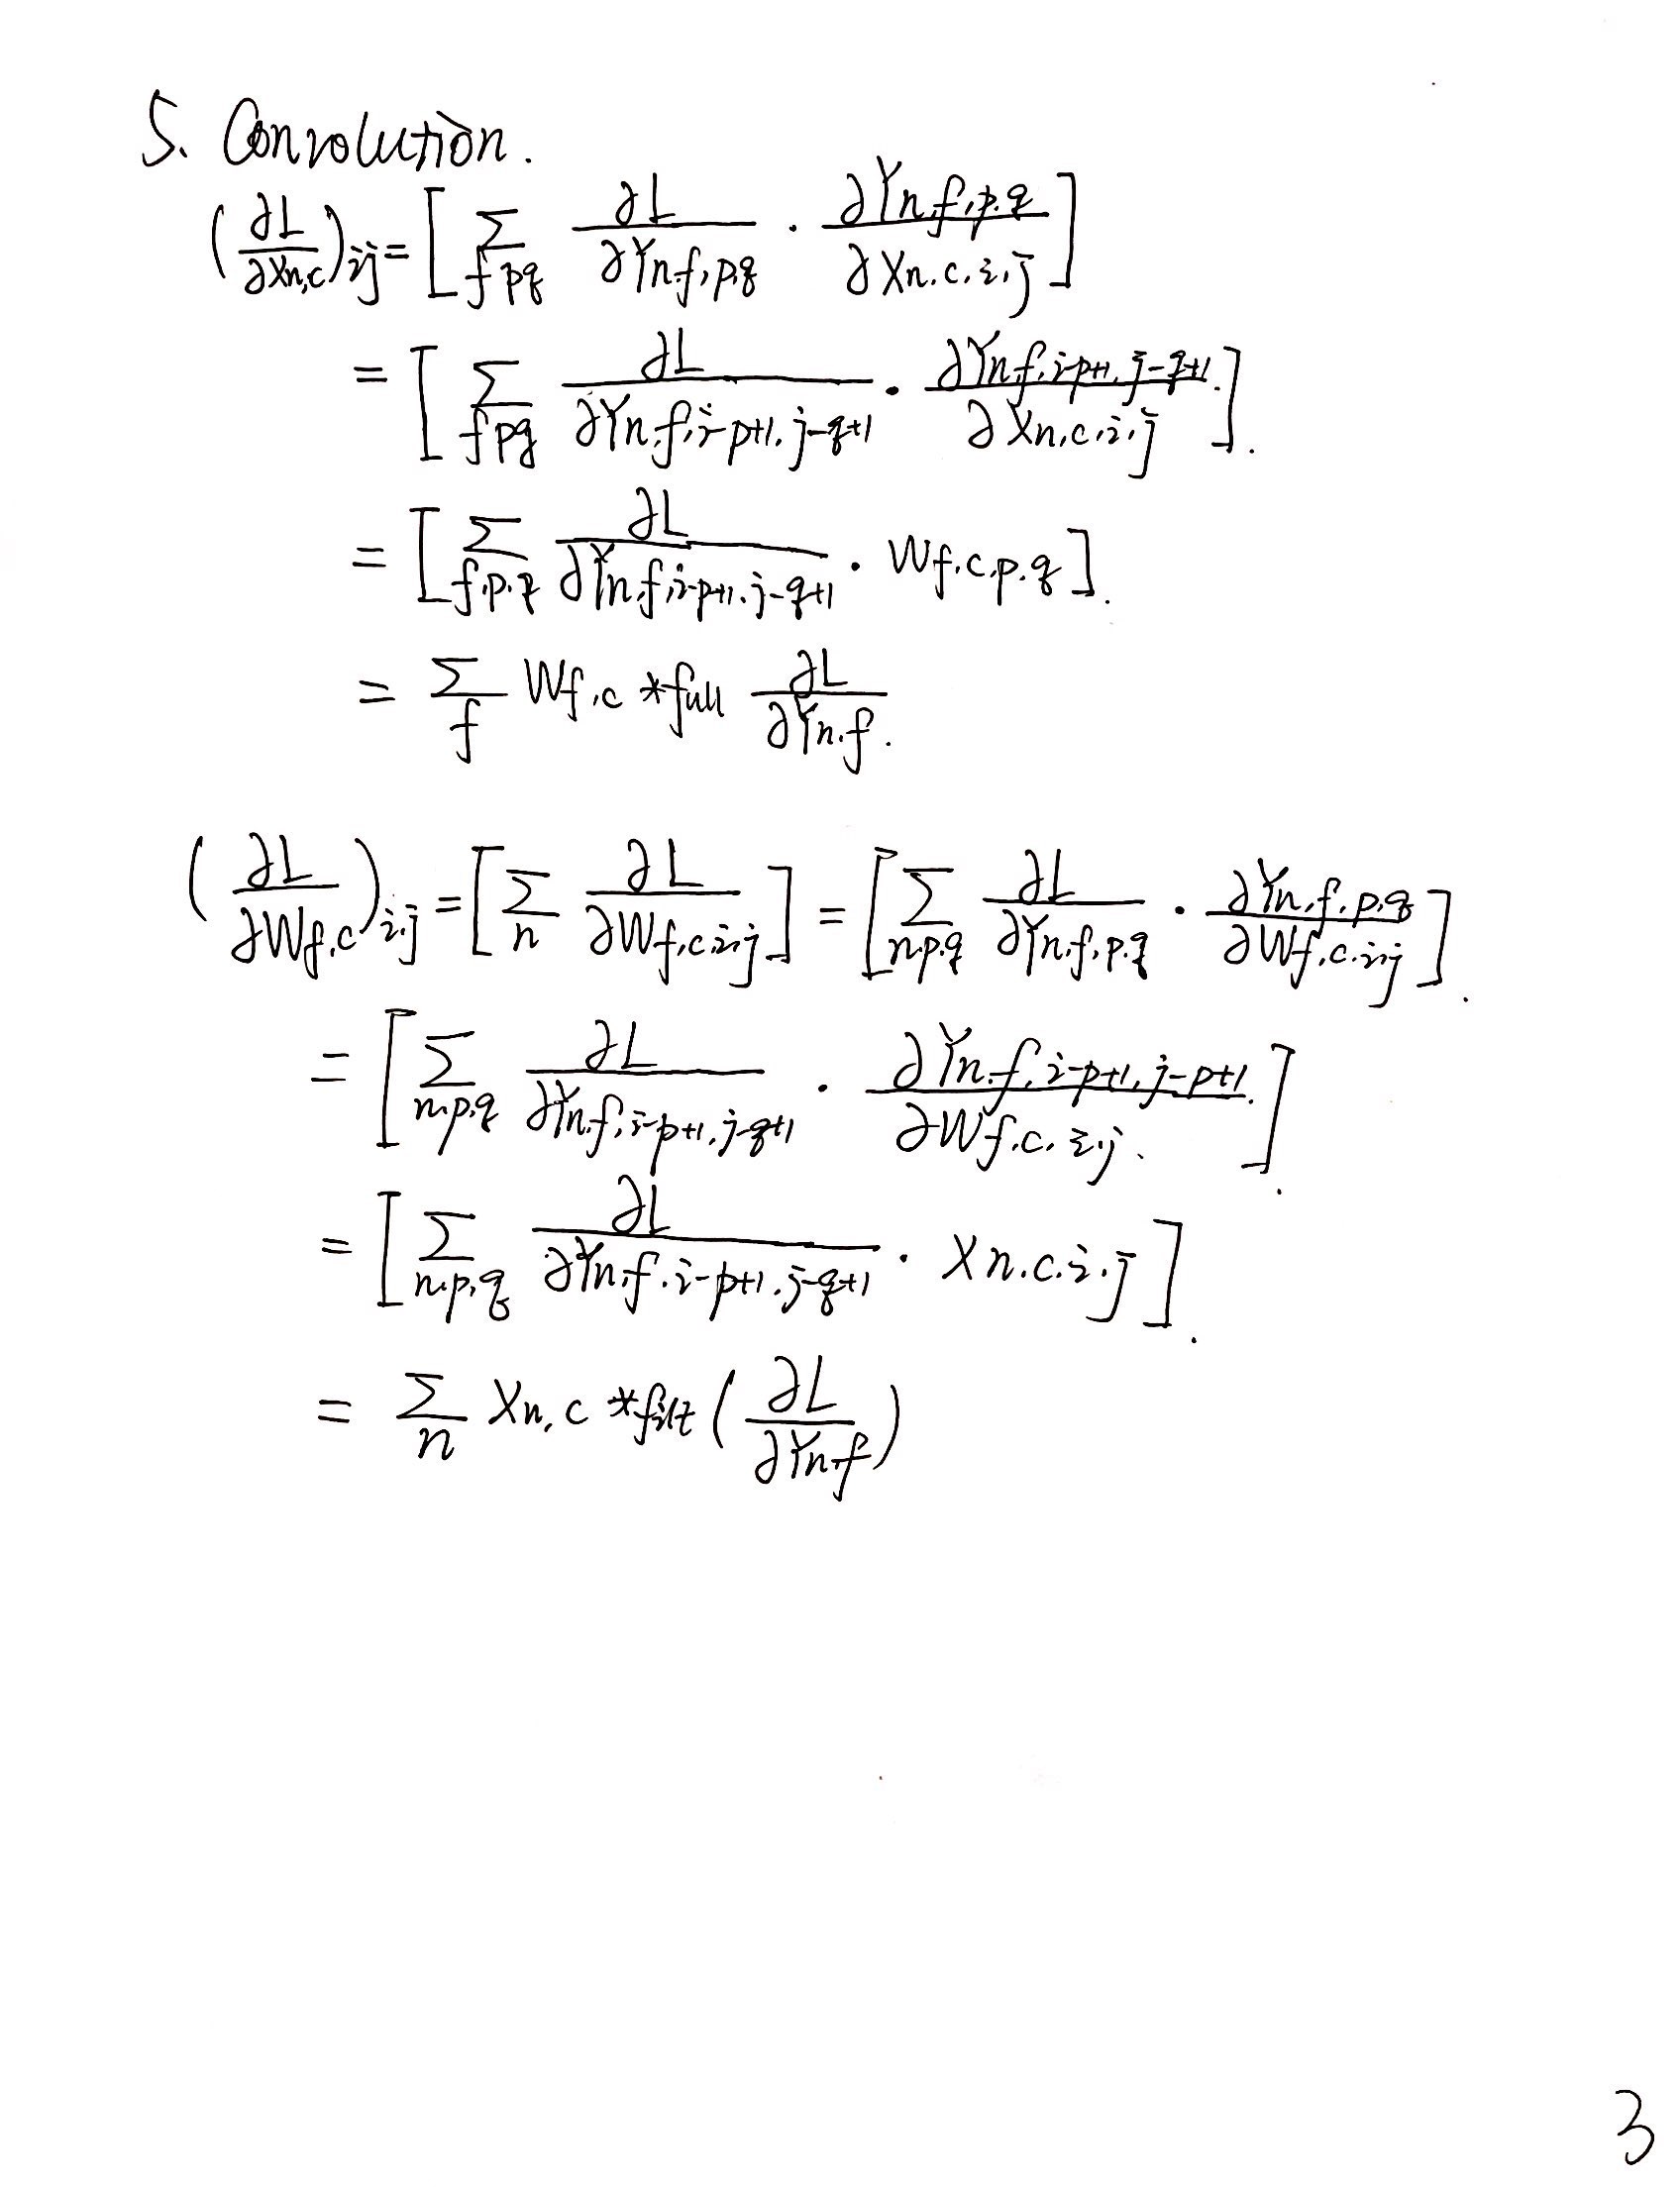 5. Convolution.
(∂L/∂Xn,c)ij = [Σ_{f p q} ∂L/∂Yn,f,p,q · ∂Yn,f,p,q/∂Xn,c,i,j]
= [Σ_{f p q} ∂L/∂Yn,f,i-p+1,j-q+1 · ∂Yn,f,i-p+1,j-q+1/∂Xn,c,i,j].
= [Σ_{f,p,q} ∂L/∂Yn,f,i-p+1,j-q+1 · Wf,c,p,q].
= Σ_f Wf,c *full ∂L/∂Yn,f.
(∂L/∂Wf,c)i,j = [Σ_n ∂L/∂Wf,c,i,j] = [Σ_{n,p,q} ∂L/∂Yn,f,p,q · ∂Yn,f,p,q/∂Wf,c,i,j].
= [Σ_{n,p,q} ∂L/∂Yn,f,i-p+1,j-q+1 · ∂Yn,f,i-p+1,j-p+1/∂Wf,c,i,j.].
= [Σ_{n,p,q} ∂L/∂Yn,f,i-p+1,j-q+1 · Xn,c,i,j].
= Σ_n Xn,c *filt (∂L/∂Yn,f)
3